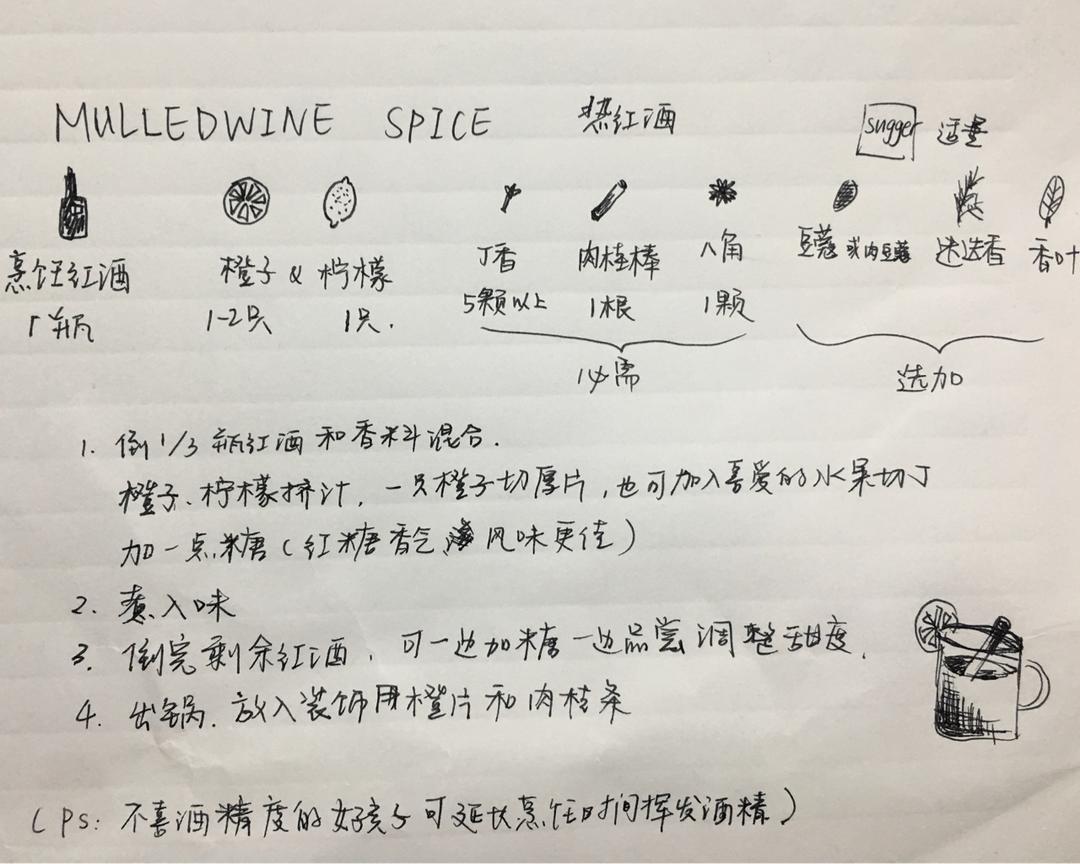 MULLEDWINE SPICE 热红酒
sugger 适量
烹饪红酒 橙子 & 柠檬 丁香 肉桂棒 八角 豆蔻 或肉豆蔻 迷迭香 香叶
1瓶 1-2只 1只. 5颗以上 1根 1颗
必需 选加
1. 倒1/3瓶红酒和香料混合.
橙子、柠檬挤汁, 一只橙子切厚片, 也可加入喜爱的水果切丁
加一点糖(红糖香气 风味更佳)
2. 煮入味
3. 倒完剩余红酒, 可一边加糖一边品尝调整甜度.
4. 出锅. 放入装饰用橙片和肉桂条
(PS: 不喜酒精度的好孩子可延长烹饪时间挥发酒精)